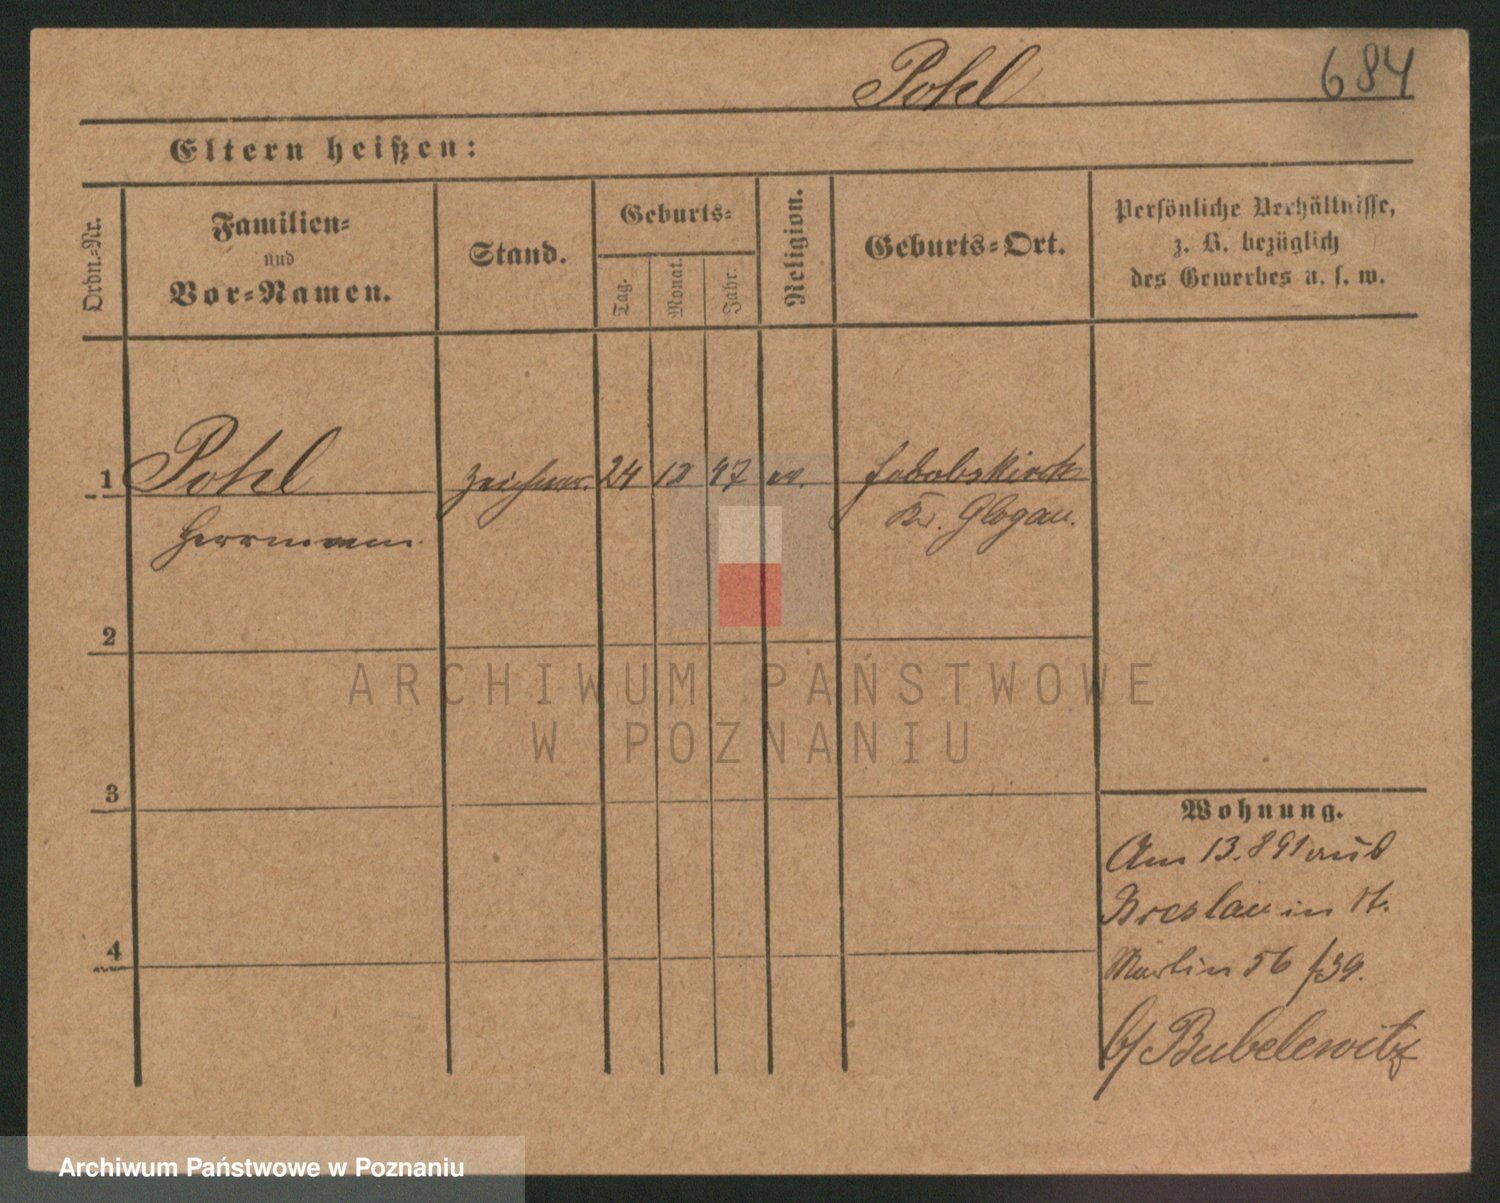 Pohl
684
Eltern heißen:
Ordn.-Nr.
Familien-
und
Vor-Namen.
Stand.
Geburts-
Tag.
Monat.
Jahr.
Religion.
Geburts-Ort.
Persönliche Verhältnisse,
z. B. bezüglich
des Gewerbes u. s. w.
1 Pohl Zeichner. 24 12 47 ev. Jakobskirch
Herrmann Kr. Glogau.
2
ARCHIWUM PAŃSTWOWE
W POZNANIU
3
Wohnung.
Am 13.8 91 aus
Breslau in St.
Martin 56/39.
b/ Bubelewitz
4
Archiwum Państwowe w Poznaniu